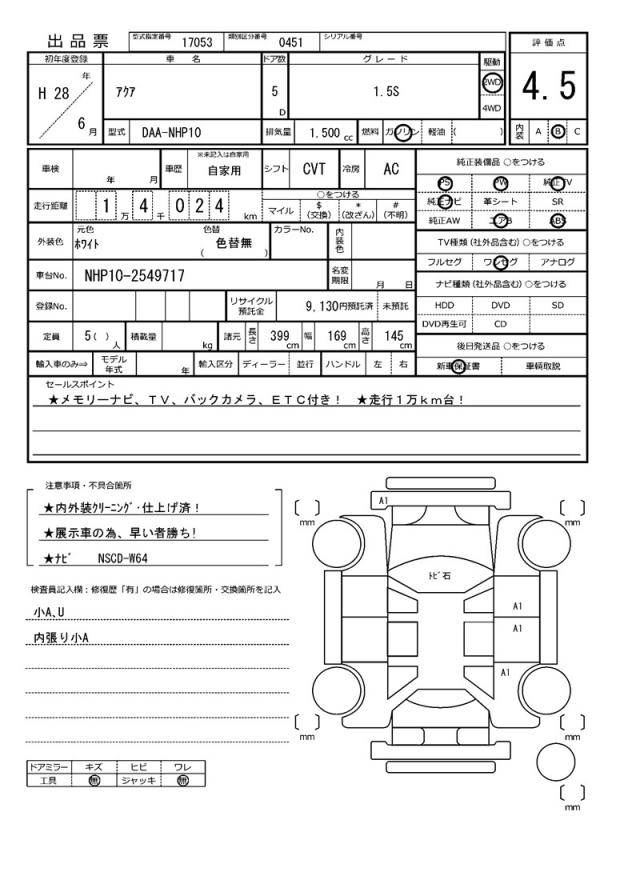 出品票 型式指定番号 17053 類別区分番号 0451 シリアル番号
評価点
4.5
内装 A B C
初年度登録 車名 ドア数 グレード 駆動
H 28 年 6 月 アクア 5 D 1.5S 2WD 4WD
型式 DAA-NHP10 排気量 1.500 cc 燃料 ガソリン 軽油 ( )
車検 年 月 車歴 ※未記入は自家用 自家用 シフト CVT 冷房 AC
走行距離 1 万 4 千 0 2 4 km ○をつける
マイル $ (交換) * (改ざん) # (不明)
外装色 元色 ホワイト 色替 色替無 ( ) カラーNo. 内装色
車台No. NHP10-2549717 名変期限 月 日
登録No. リサイクル預託金 9,130円預託済 未預託
定員 5( ) 人 積載量 kg 諸元 長さ 399 cm 幅 169 cm 高さ 145 cm
輸入車のみ⇒ モデル年式 年 輸入区分 ディーラー 並行 ハンドル 左 右
純正装備品 ○をつける
PS PW 純正TV
純正ナビ 革シート SR
純正AW エアB ABS
TV種類 (社外品含む) ○をつける
フルセグ ワンセグ アナログ
ナビ種類 (社外品含む) ○をつける
HDD DVD SD
DVD再生可 CD
後日発送品 ○をつける
新車保証書 車輌取説
セールスポイント
★メモリーナビ、TV、バックカメラ、ETC付き! ★走行1万km台!
注意事項・不具合箇所
★内外装クリーニング・仕上げ済!
★展示車の為、早い者勝ち!
★ナビ NSCD-W64
検査員記入欄:修復歴「有」の場合は修復箇所・交換箇所を記入
小A、U
内張り小A
ドアミラー キズ ヒビ ワレ
工具 無 ジャッキ 無
A1
[ ] mm
[ ] mm
トビ石
A1
A1
A1
[ ] mm
[ ] mm
[ ] mm